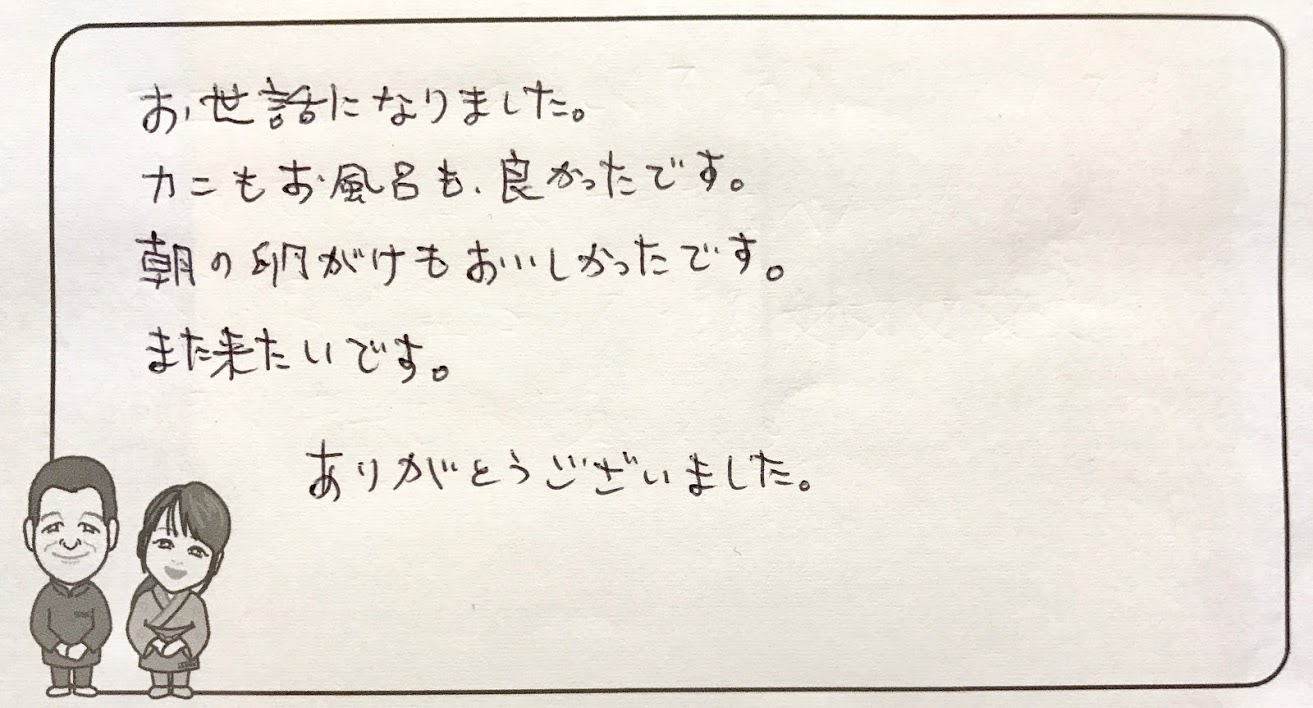 お世話になりました。
カニもお風呂も、良かったです。
朝の卵がけもおいしかったです。
また来たいです。
ありがとうございました。